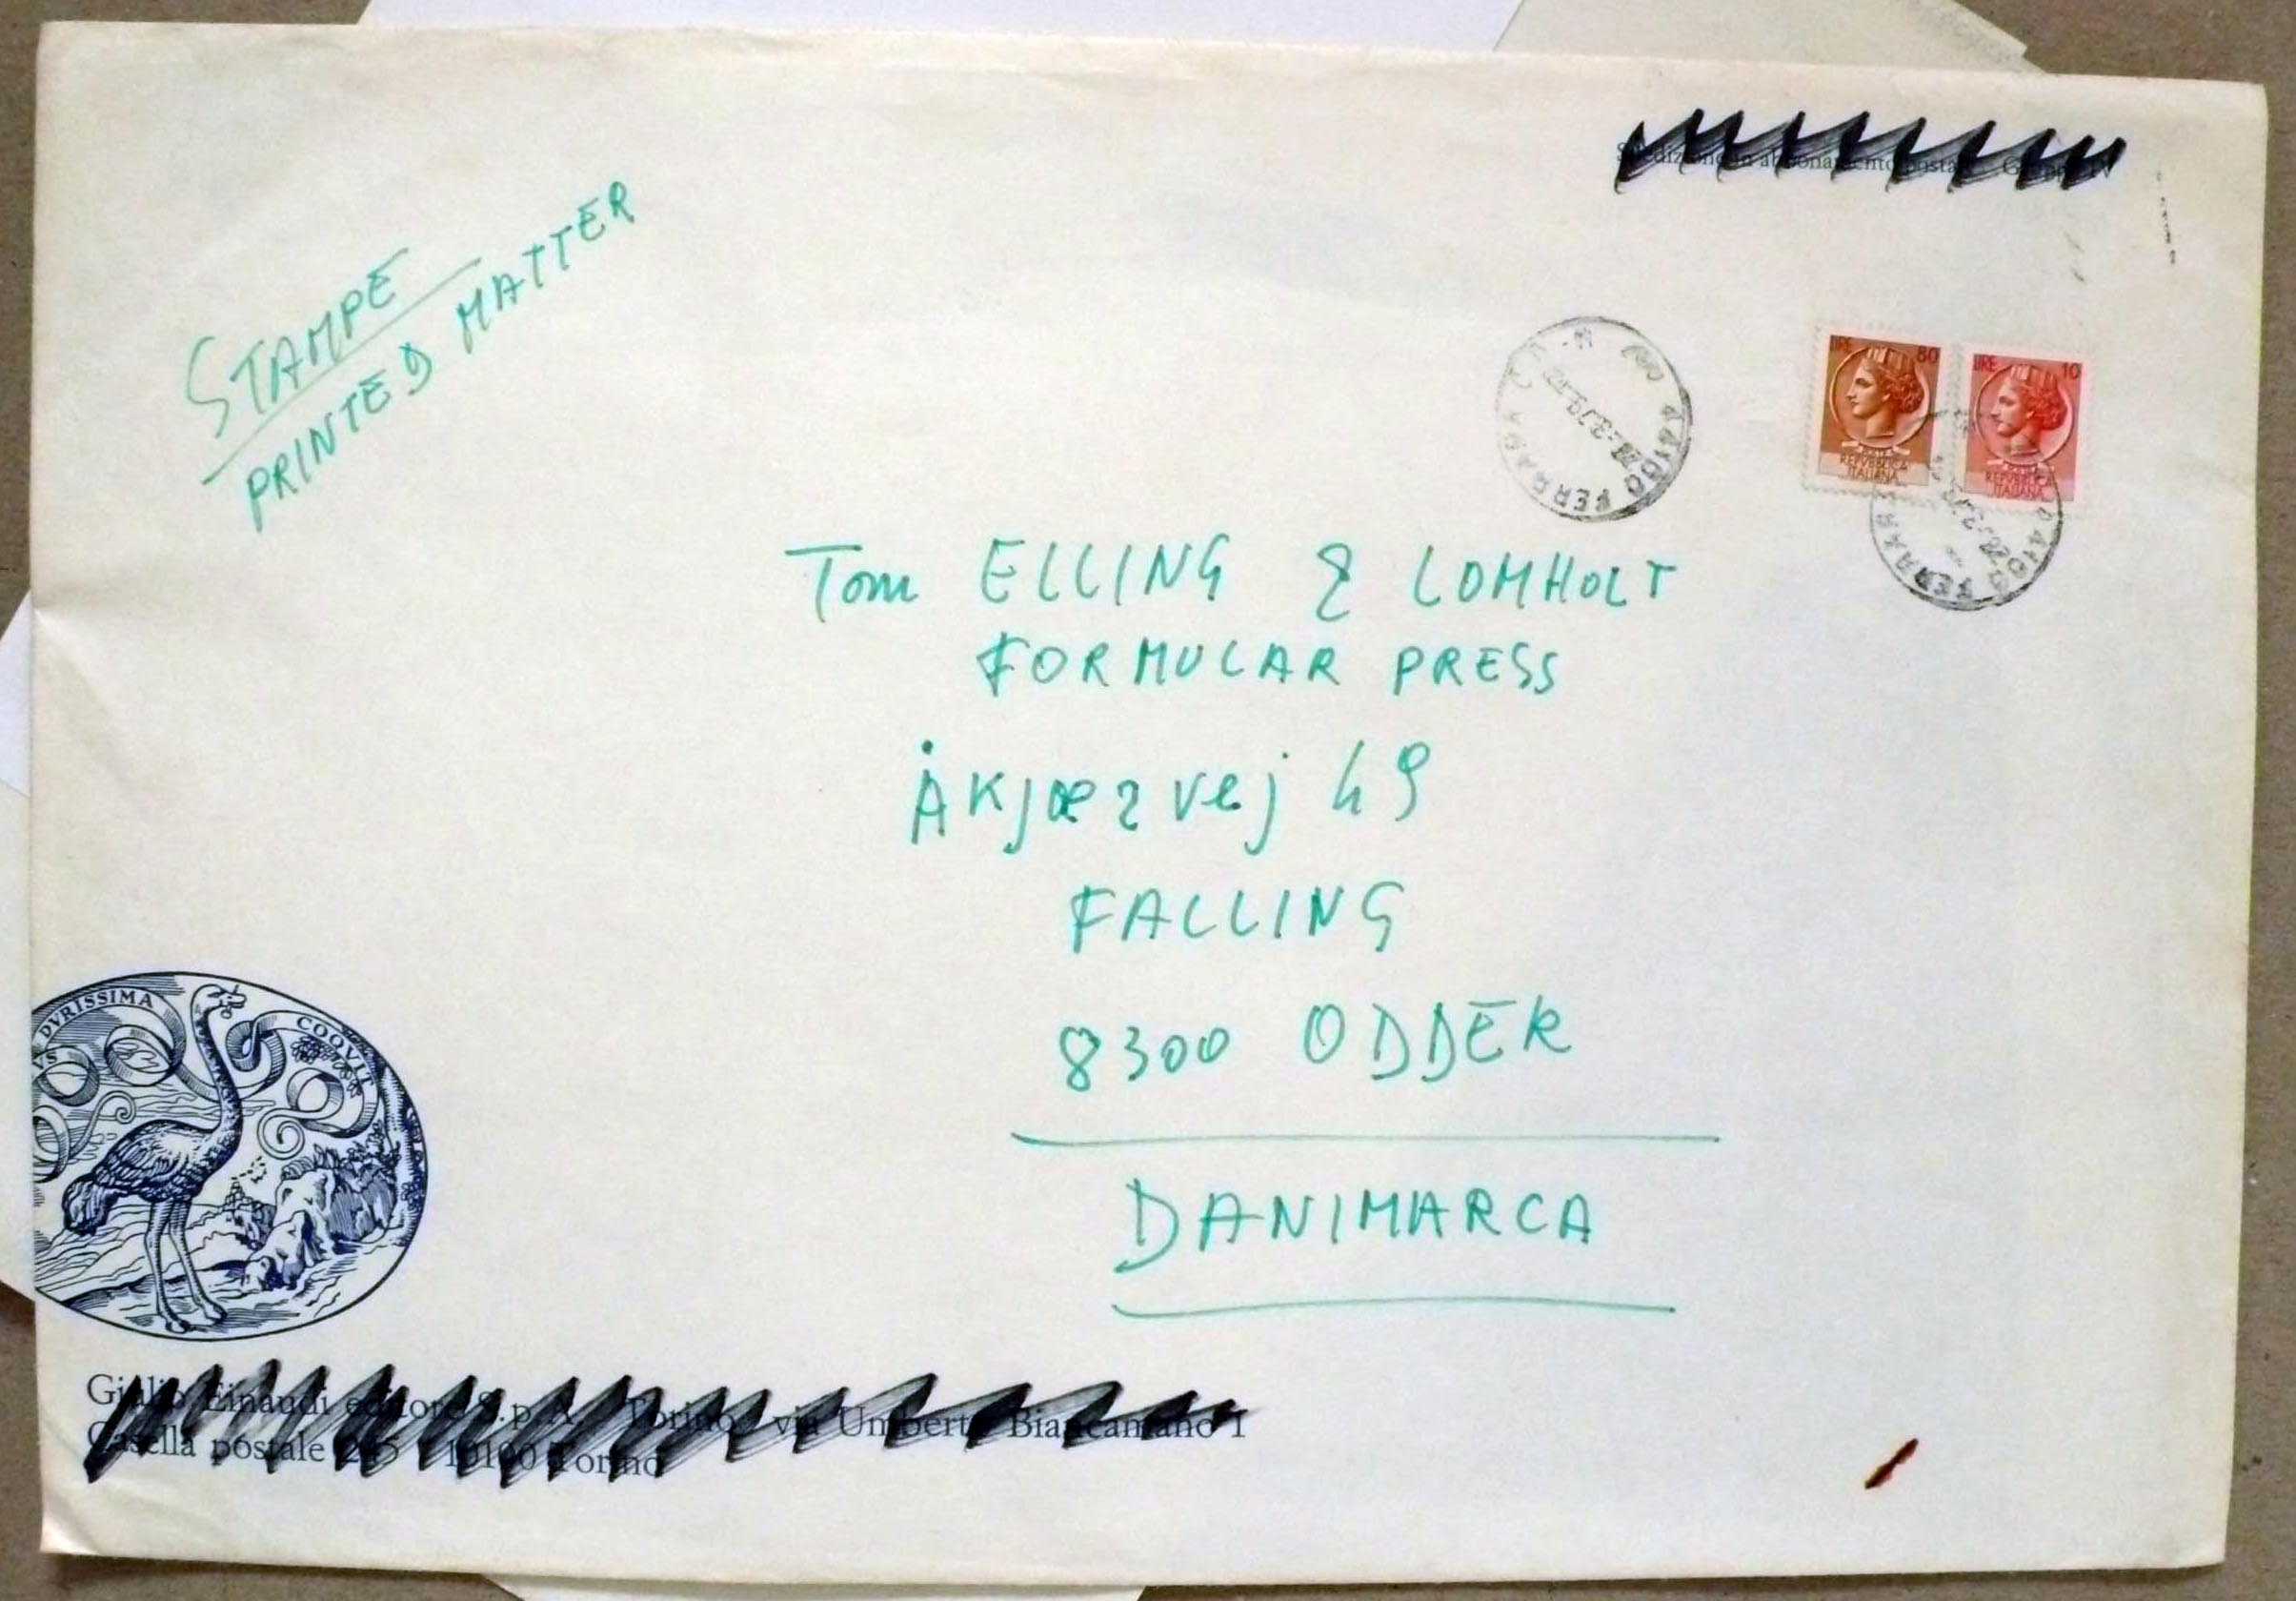 Spedizione in abbonamento postale Gruppo IV
STAMPE
PRINTED MATTER
LIRE 80
REPVBBLICA
ITALIANA
LIRE 10
REPVBBLICA
ITALIANA
44100 FERRARA
28.3.79
44100 FERRARA
28.3.79
Tom ELLING & LOMHOLT
FORMULAR PRESS
Åkjærvej 49
FALLING
8300 ODDER
DANIMARCA
DVRISSIMA
COQVIT
Giulio Einaudi editore S.p.A. Torino, via Umberto Biancamano 1
Casella postale 245 10100 Torino